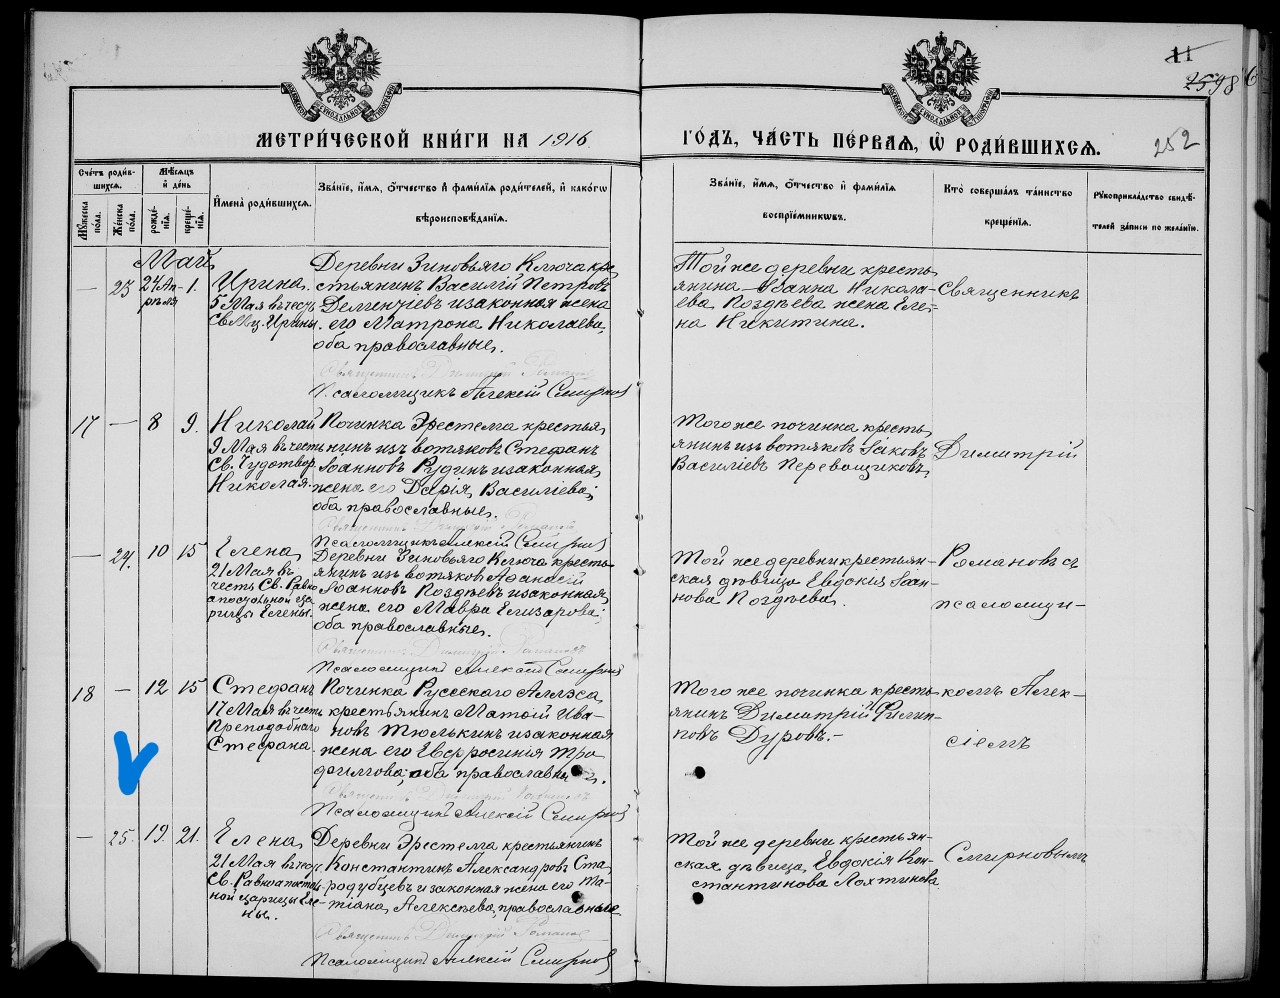 11
2598
252
МОСКОВСКОЙ СУНОДАЛЬНОЙ ТИПОГРАФІИ
МОСКОВСКОЙ СУНОДАЛЬНОЙ ТИПОГРАФІИ
МЕТРИ́ЧЕСКОЙ КНИ́ГИ НА 1916
ГО́ДЪ, ЧА́СТЬ ПЕ́РВАЯ, Ѡ҆ РОДИ́ВШИХСЯ.
Сче́тъ роди́в-
шихся.
Мѣ́сяцъ
й де́нь
Му́жеска по́ла.
Же́нска по́ла.
рожде́-
нїя.
креще́-
нїя.
Имена̀ роди́вшихся.
Зва́нїе, и́мя, ѻ́тчество й фами́лїя роди́телей, й како́гѡ
вѣроисповѣ́данїя.
Зва́нїе, и́мя, ѻ́тчество й фами́лїя
воспрїе́мникѡвъ.
Кто̀ соверша́лъ та́инство
креще́нїя.
Рꙋкоприкла́дство свидѣ́-
телей за́писи по жела́нїю.
Май
— 23 24 Ап-
рѣля 1.
Ирина
5 Мая въ честь
Св. Мц. Ирины.
Деревни Зиновьяго Ключа кре-
стьянинъ Василій Петровъ
Деменчіевъ и законная жена
его Матрона Николаева,
оба православные.
Священникъ Димитрій Романовъ
Псаломщикъ Алексій Смирновъ
Той же деревни кресть-
янина Іоанна Никола-
ева Поздѣева жена Еле-
на Никитина.
Священникъ
17 — 8 9.
Николай
9 Мая въ честь
Св. Чудотвор.
Николая.
Починка Эрестема крестья-
нинъ изъ вотяковъ Стефанъ
Іоанновъ Рудинъ и законная
жена его Дарія Василіева,
оба православные.
Священникъ Димитрій Романовъ
Псаломщикъ Алексій Смирновъ
Того же починка кресть-
янинъ изъ вотяковъ Іаковъ
Василіевъ Перевощиковъ
Димитрій
— 24. 10 15
Елена
21 Мая въ
честь Св. Равно-
апостольной ца-
рицы Елены.
Деревни Зиновьяго Ключа кресть-
янинъ изъ вотяковъ Аѳанасій
Іоанновъ Поздѣевъ и законная
жена его Мавра Елизарова,
оба православные.
Священникъ Димитрій Романовъ
Псаломщикъ Алексій Смирновъ
Той же деревни крестьян-
ская дѣвица Евдокія Іоан-
нова Поздѣева.
Романовъ съ
псаломщи-
18 — 12 15
Стефанъ
17 Мая въ честь
Преподобнаго
Стефана.
Починка Русскаго
крестьянинъ Матѳій Ива-
новъ Тюлькинъ и законная
жена его Евфросинія Тро-
фимова, оба православные.
Священникъ Димитрій Романовъ
Псаломщикъ Алексій Смирновъ
Того же починка кресть-
янинъ Димитрій Филип-
повъ Дуровъ.
комъ Алек-
сіемъ
— 25. 19. 21.
Елена
21 Мая въ чест.
Св. Равноапостоль-
ной царицы Еле-
ны.
Деревни Эрестема крестьянинъ
Константинъ Александровъ Ста-
родубцевъ и законная жена его Та-
тіана Алексѣева, православные.
Священникъ Димитрій Романовъ
Псаломщикъ Алексій Смирновъ
Той же деревни крестьян-
ская дѣвица Евдокія Кон-
стантинова Лохтинова
Смирновымъ